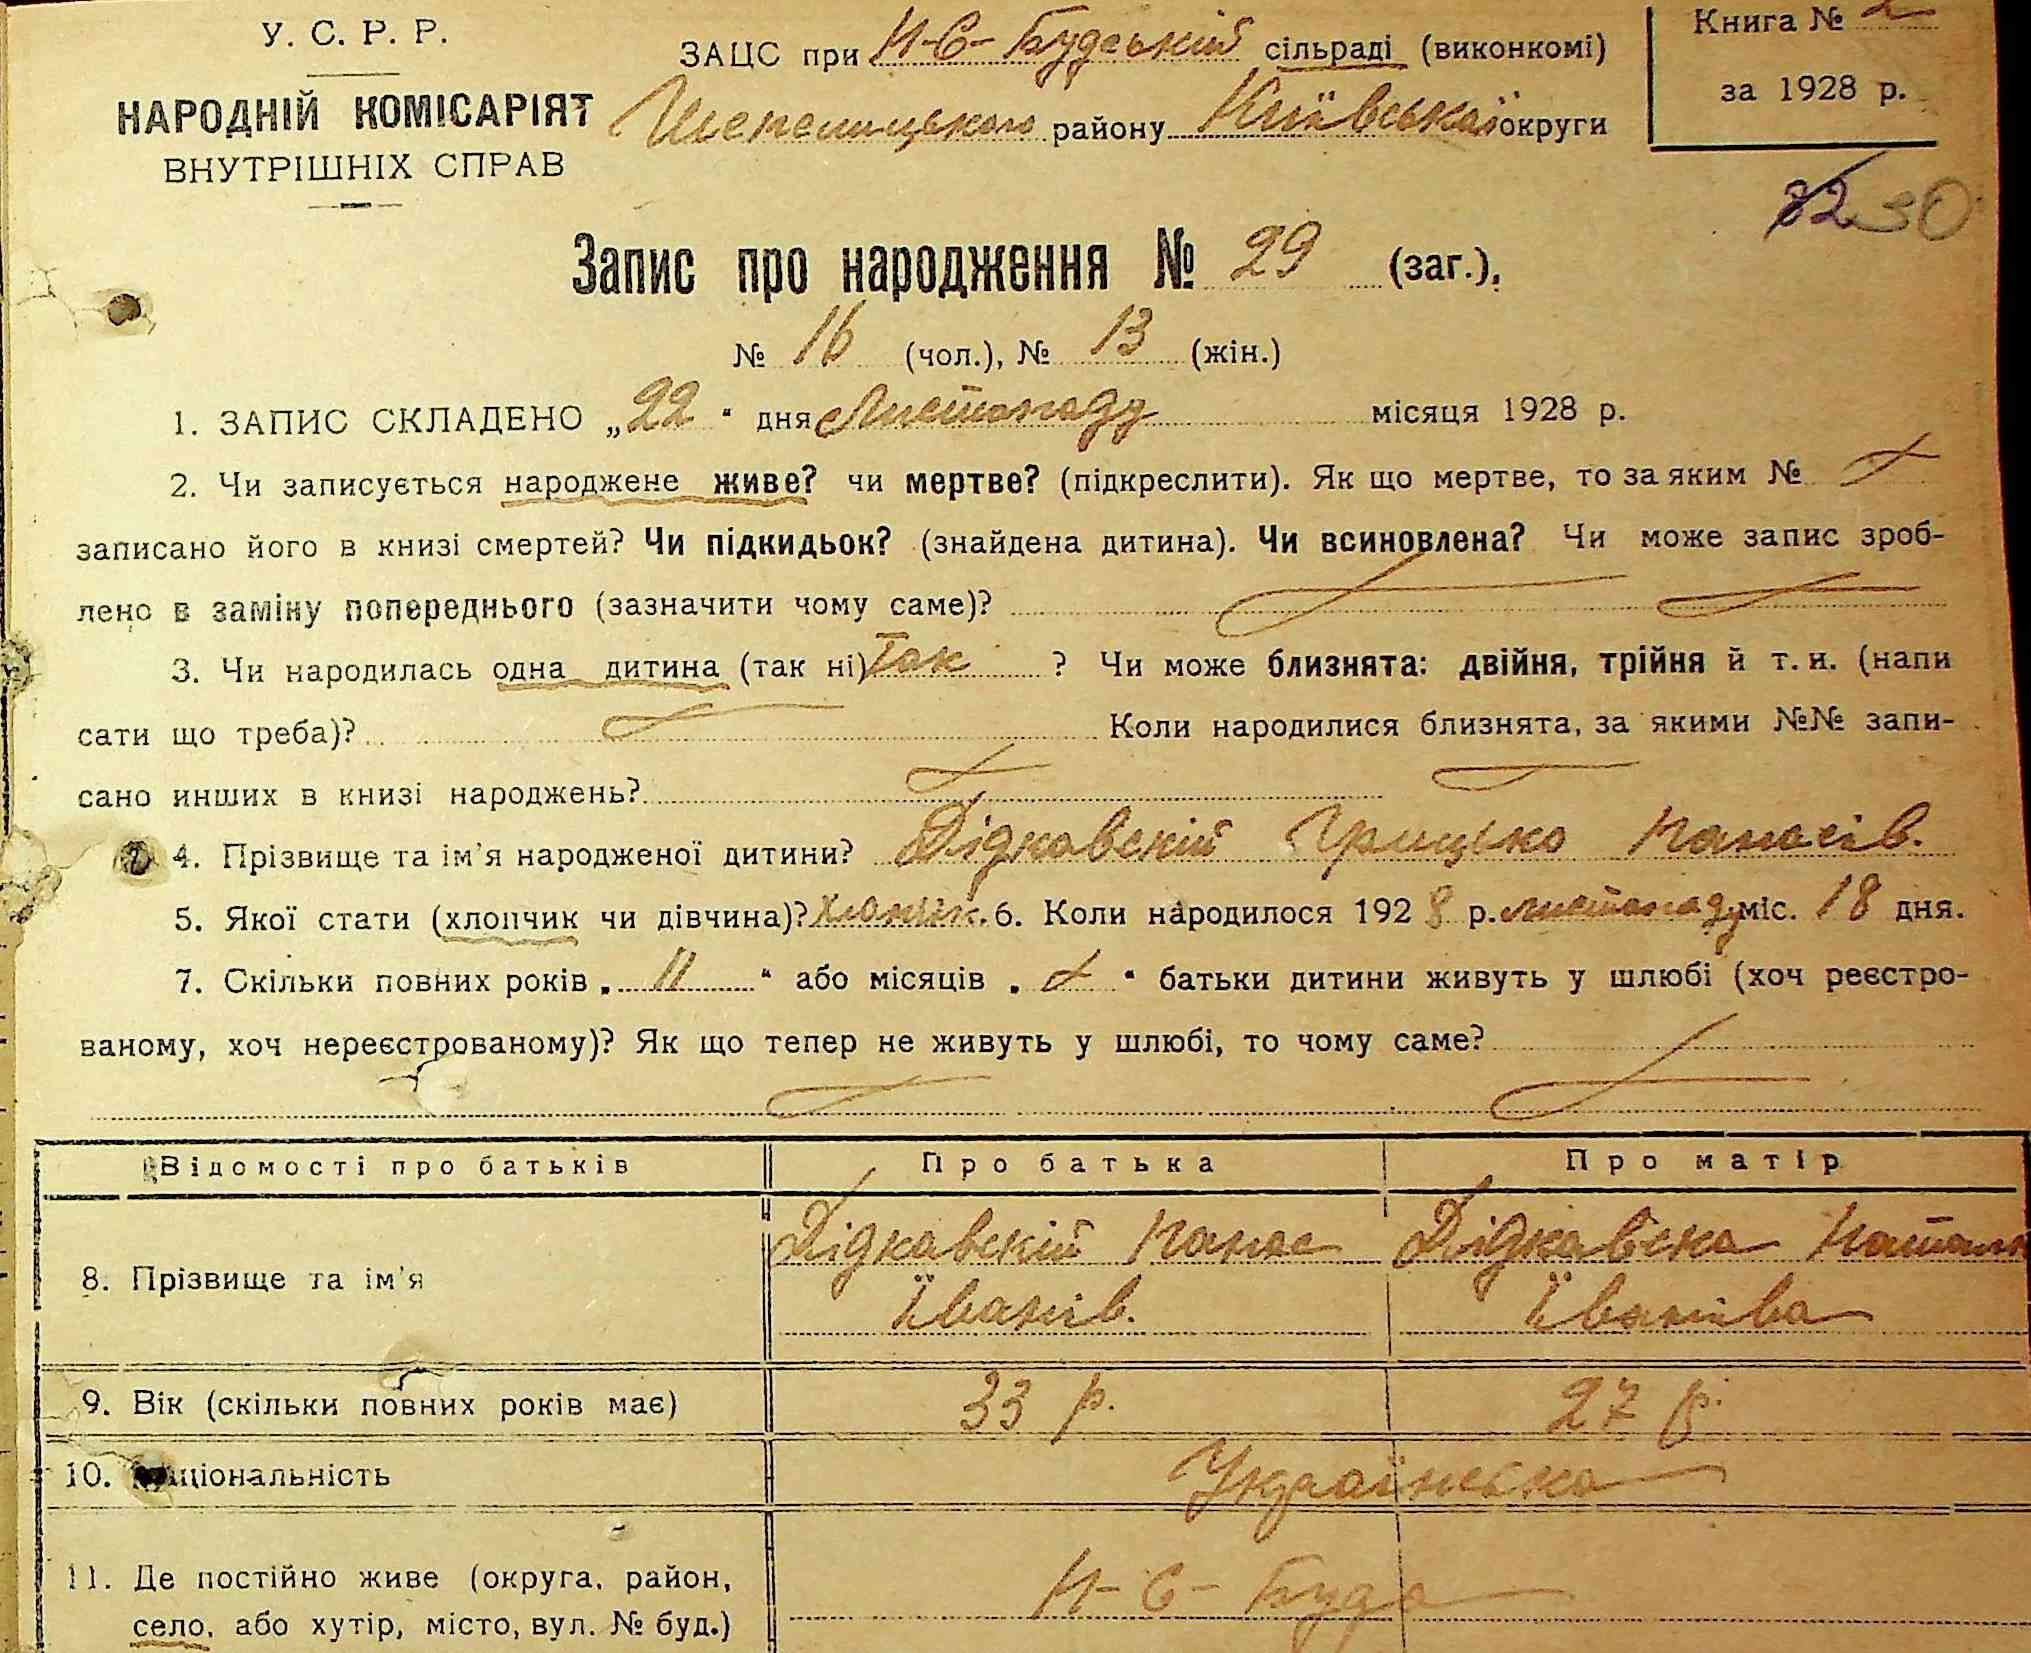 У. С. Р. Р.
НАРОДНІЙ КОМІСАРІЯТ
ВНУТРІШНІХ СПРАВ
ЗАЦС при Н-С- Будський сільраді (виконкомі)
Шепелицького району Київської округи
Книга № 2
за 1928 р.
82 30
Запис про народження № 29 (заг.),
№ 16 (чол.), № 13 (жін.)
1. ЗАПИС СКЛАДЕНО „22" дня Листопаду місяця 1928 р.
2. Чи записується народжене живе? чи мертве? (підкреслити). Як що мертве, то за яким №
записано його в книзі смертей? Чи підкидьок? (знайдена дитина). Чи всиновлена? Чи може запис зроб-
лено в заміну попереднього (зазначити чому саме)?
3. Чи народилась одна дитина (так ні) Так ? Чи може близнята: двійня, трійня й т. и. (напи
сати що треба)? Коли народилися близнята, за якими №№ запи-
сано инших в книзі народжень?
4. Прізвище та ім'я народженої дитини? Дідкавскій Грицько Панасів.
5. Якої стати (хлопчик чи дівчина)? Хлопчик. 6. Коли народилося 1928 р. листопаду міс. 18 дня.
7. Скільки повних років „ 11 " або місяців „ " батьки дитини живуть у шлюбі (хоч реєстро-
ваному, хоч нереєстрованому)? Як що тепер не живуть у шлюбі, то чому саме?
Відомості про батьків Про батька Про матір
8. Прізвище та ім'я Дідкавскій Панас Їванів. Дідкавска Наталк Їванівa
9. Вік (скільки повних років має) 33 р. 27 р.
10. Національність Українська
11. Де постійно живе (округа, район,
село, або хутір, місто, вул. № буд.) Н-С- Буда